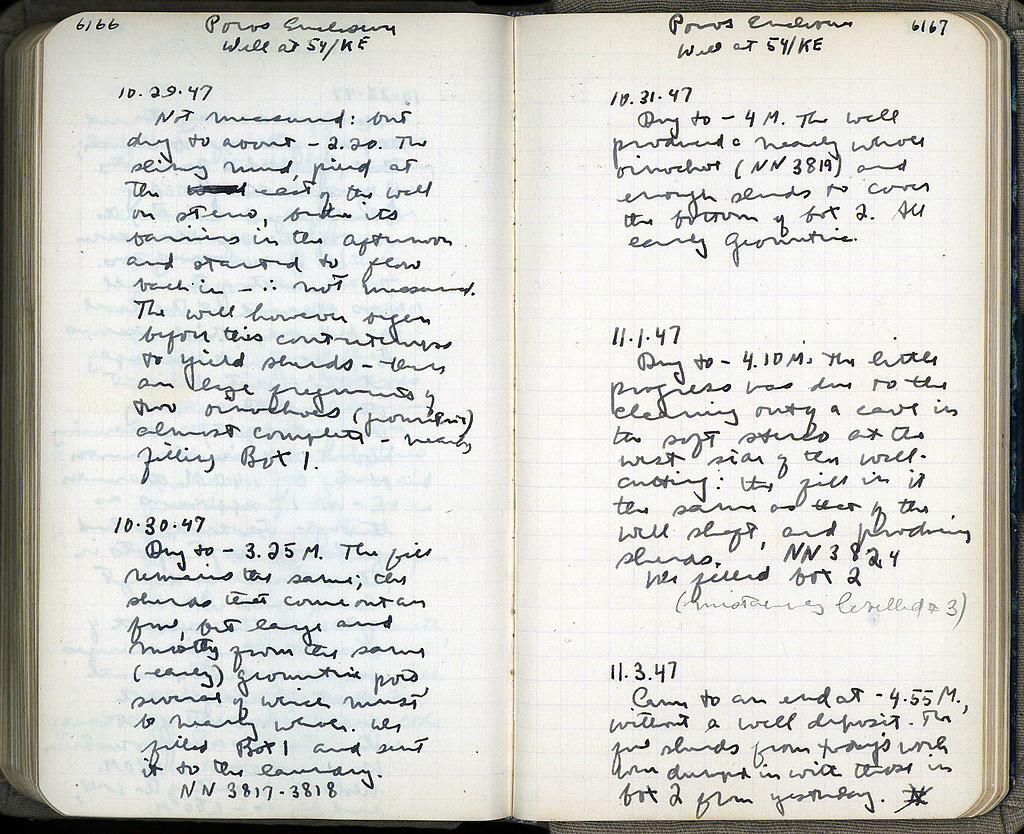 6166
Poros Enclosure
Well at 54/KE
10.29.47
Not measured: but
dug to about - 2.20. The
slimy mud, piled at
the east of the well
on stereo, broke its
barriers in the afternoon
and started to flow
back in - ∴ not measured.
The well however began
before this contretemps
to yield sherds - there
are large fragments of
two oinochoes (geometric)
almost complete - nearly
filling Box 1.
10.30.47
Dug to - 3.25 M. The fill
remains the same; the
sherds that come out are
few, but large and
mostly from the same
(early) geometric pots
several of which must
be nearly whole. We
filled Box 1 and sent
it to the laundry.
NN 3817-3818
6167
Poros Enclosure
Well at 54/KE
10.31.47
Dug to - 4 M. The well
produced a nearly whole
oinochoe (NN 3819) and
enough sherds to cover
the bottom of box 2. All
early Geometric.
11.1.47
Dug to - 4.10 M. The little
progress was due to the
cleaning out of a cave in
the soft stereo at the
west side of the well-
cutting: the fill in it
the same as that of the
well shaft, and producing
sherds. NN 3824
We filled box 2
(mistakenly labelled # 3)
11.3.47
Came to an end at - 4.55 M.,
without a well deposit. The
few sherds from today's work
were dumped in with those in
box 2 from yesterday.